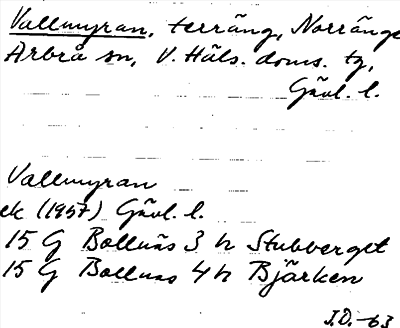 Vallmyran, terräng, Norränge
Arbrå sn, V. Häls. doms. tg,
Gävl. l.
Vallmyran
ek (1957) Gävl. l.
15 G Bollnäs 3 h Stubberget
15 G Bollnäs 4 h Bjärken
J.O. -63